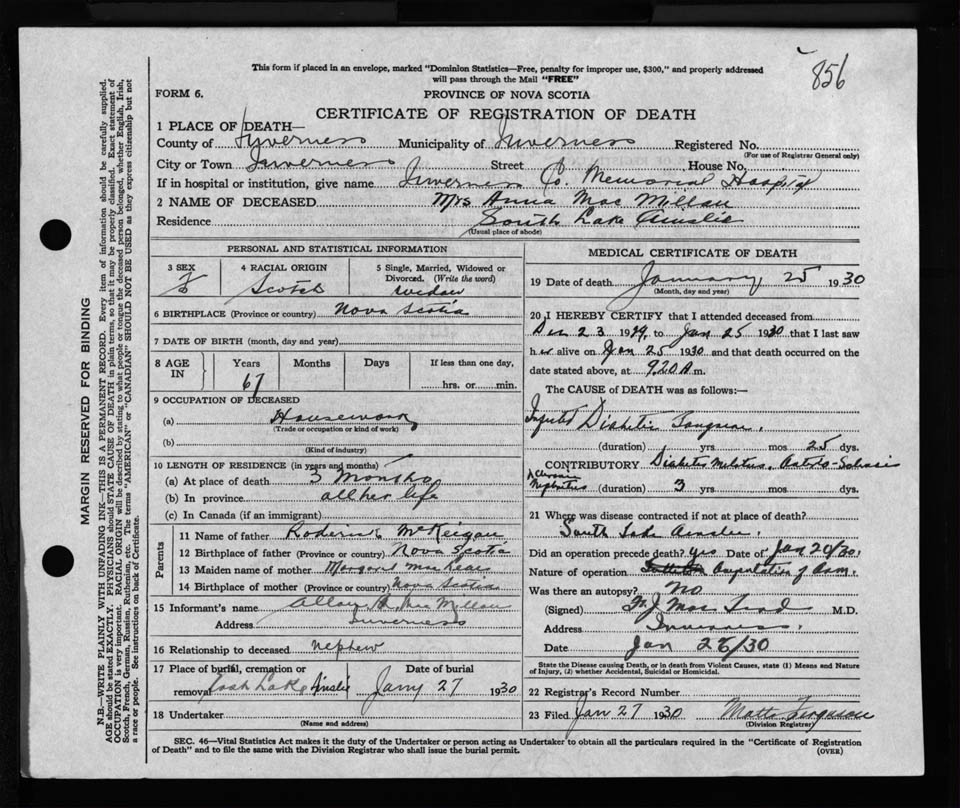 856
This form if placed in an envelope, marked "Dominion Statistics—Free, penalty for improper use, $300," and properly addressed
will pass through the Mail "FREE"
FORM 6.
PROVINCE OF NOVA SCOTIA
CERTIFICATE OF REGISTRATION OF DEATH
1 PLACE OF DEATH—
County of Inverness Municipality of Inverness Registered No.
(For use of Registrar General only)
City or Town Inverness Street House No.
If in hospital or institution, give name Inverness Co. Memorial Hospital
2 NAME OF DECEASED Mrs Anna Mac Millan
Residence South Lake Ainslie
(Usual place of abode)
PERSONAL AND STATISTICAL INFORMATION
3 SEX 4 RACIAL ORIGIN 5 Single, Married, Widowed or
Divorced. (Write the word)
f Scotch widow
6 BIRTHPLACE (Province or country) Nova Scotia
7 DATE OF BIRTH (month, day and year)
8 AGE IN Years Months Days If less than one day,
67 hrs. or min.
9 OCCUPATION OF DECEASED
(a) Housework
(Trade or occupation or kind of work)
(b)
(Kind of industry)
10 LENGTH OF RESIDENCE (in years and months)
(a) At place of death 3 Months
(b) In province all her life
(c) In Canada (if an immigrant)
Parents
11 Name of father Roderick McKeigan
12 Birthplace of father (Province or country) Nova Scotia
13 Maiden name of mother Margaret Mac Lean
14 Birthplace of mother (Province or country) Nova Scotia
15 Informant's name Mac Millan
Address Inverness
16 Relationship to deceased nephew
17 Place of burial, cremation or Date of burial
removal East Lake Ainslie Jany 27 1930
18 Undertaker
(Name and address)
MEDICAL CERTIFICATE OF DEATH
19 Date of death January 25 1930
(Month, day and year)
20 I HEREBY CERTIFY that I attended deceased from
Dec 23 1929, to Jan 25 1930 that I last saw
her alive on Jan 25 1930 and that death occurred on the
date stated above, at 9.20 A m.
The CAUSE OF DEATH was as follows:—
Diabetic Gangrene.
(duration) yrs. mos 25 dys.
CONTRIBUTORY Diabetes
Chronic
Nephritis (duration) 3 yrs. mos. dys.
21 Where was disease contracted if not at place of death?
South Lake Ainslie.
Did an operation precede death? yes Date of Jan 20/30.
Nature of operation Amputation of
Was there an autopsy? No
(Signed) M.D.
Address Inverness.
Date Jan 26/30
State the Disease causing Death, or in death from Violent Causes, state (1) Means and Nature
of Injury, (2) whether Accidental, Suicidal or Homicidal.
22 Registrar's Record Number
23 Filed Jan 27 1930 Ferguson
(Division Registrar)
SEC. 46—Vital Statistics Act makes it the duty of the Undertaker or person acting as Undertaker to obtain all the particulars required in the "Certificate of Registration
of Death" and to file the same with the Division Registrar who shall issue the burial permit.
(OVER)
MARGIN RESERVED FOR BINDING
N.B.—WRITE PLAINLY WITH UNFADING INK—THIS IS A PERMANENT RECORD. Every item of information should be carefully supplied.
AGE should be stated EXACTLY. PHYSICIANS should STATE CAUSE OF DEATH in plain terms, so that it may be properly classified. Exact statement of
OCCUPATION is very important. RACIAL ORIGIN will be described by stating to what people or tongue the deceased person belonged, whether English, Irish,
Scotch, French, German, Russian, Ruthenian, etc. The terms "AMERICAN" or "CANADIAN" SHOULD NOT BE USED as they express citizenship but not
a race or people. See instructions on back of Certificate.